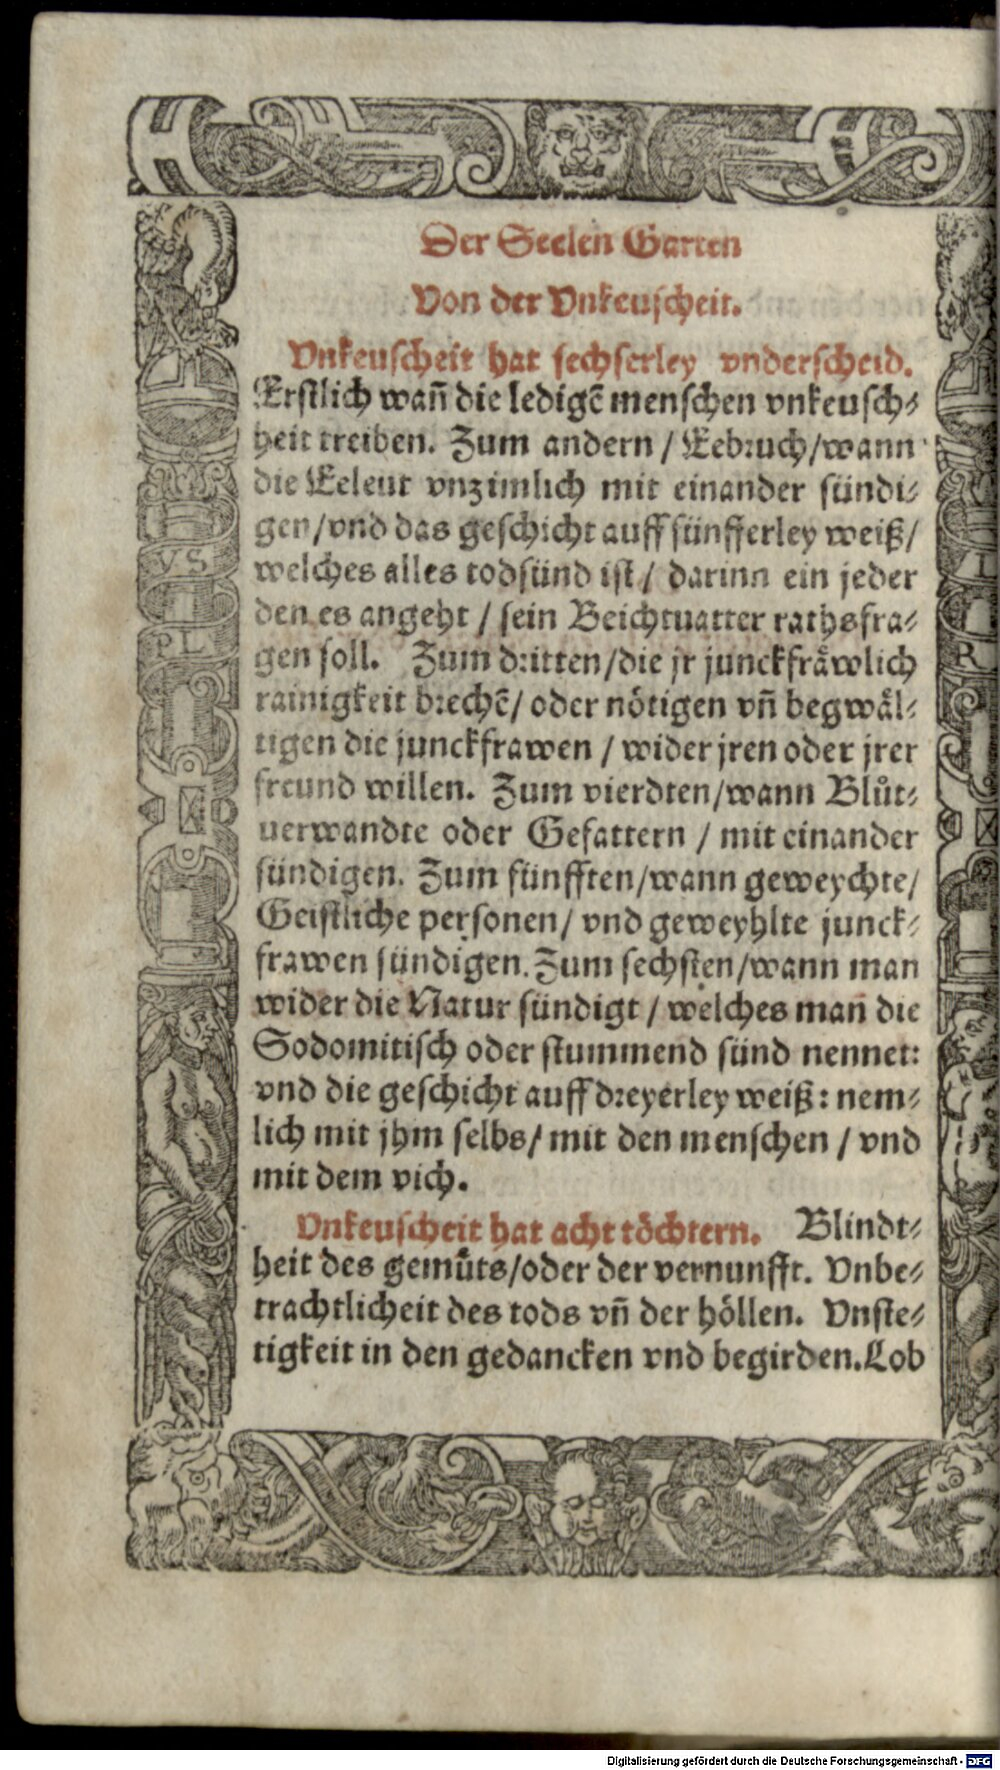 Der Seelen Garten
Von der Vnkeuscheit.
Vnkeuscheit hat sechserley vnderscheid.
Erstlich wañ die ledigẽ menschen vnkeusch⸗
heit treiben. Zum andern / Eebruch/wann
die Eeleut vnzimlich mit einander sündi⸗
gen/vnd das geschicht auff fünfferley weiß/
welches alles todsünd ist / darinn ein jeder
den es angeht / sein Beichtuatter rathsfra⸗
gen soll. Zum dritten/die jr junckfrăwlich
rainigkeit brechẽ/ oder nötigen vñ begwäl⸗
tigen die junckfrawen / wider jren oder jrer
freund willen. Zum vierdten/wann Blůt⸗
uerwandte oder Gefattern / mit einander
sündigen. Zum fünfften/wann geweychte/
Geistliche personen/ vnd geweyhlte junck⸗
frawen sündigen. Zum sechsten/wann man
wider die Natur sündigt / welches mañ die
Sodomitisch oder stummend sünd nennet:
vnd die geschicht auff dreyerley weiß: nem⸗
lich mit jhm selbs/ mit den menschen / vnd
mit dem vich.
Vnkeuscheit hat acht töchtern. Blindt⸗
heit des gemůts/oder der vernunfft. Vnbe⸗
trachtlicheit des tods vñ der höllen. Vnste⸗
tigkeit in den gedancken vnd begirden. Lob
VS
PL
R
Digitalisierung gefördert durch die Deutsche Forschungsgemeinschaft - DFG